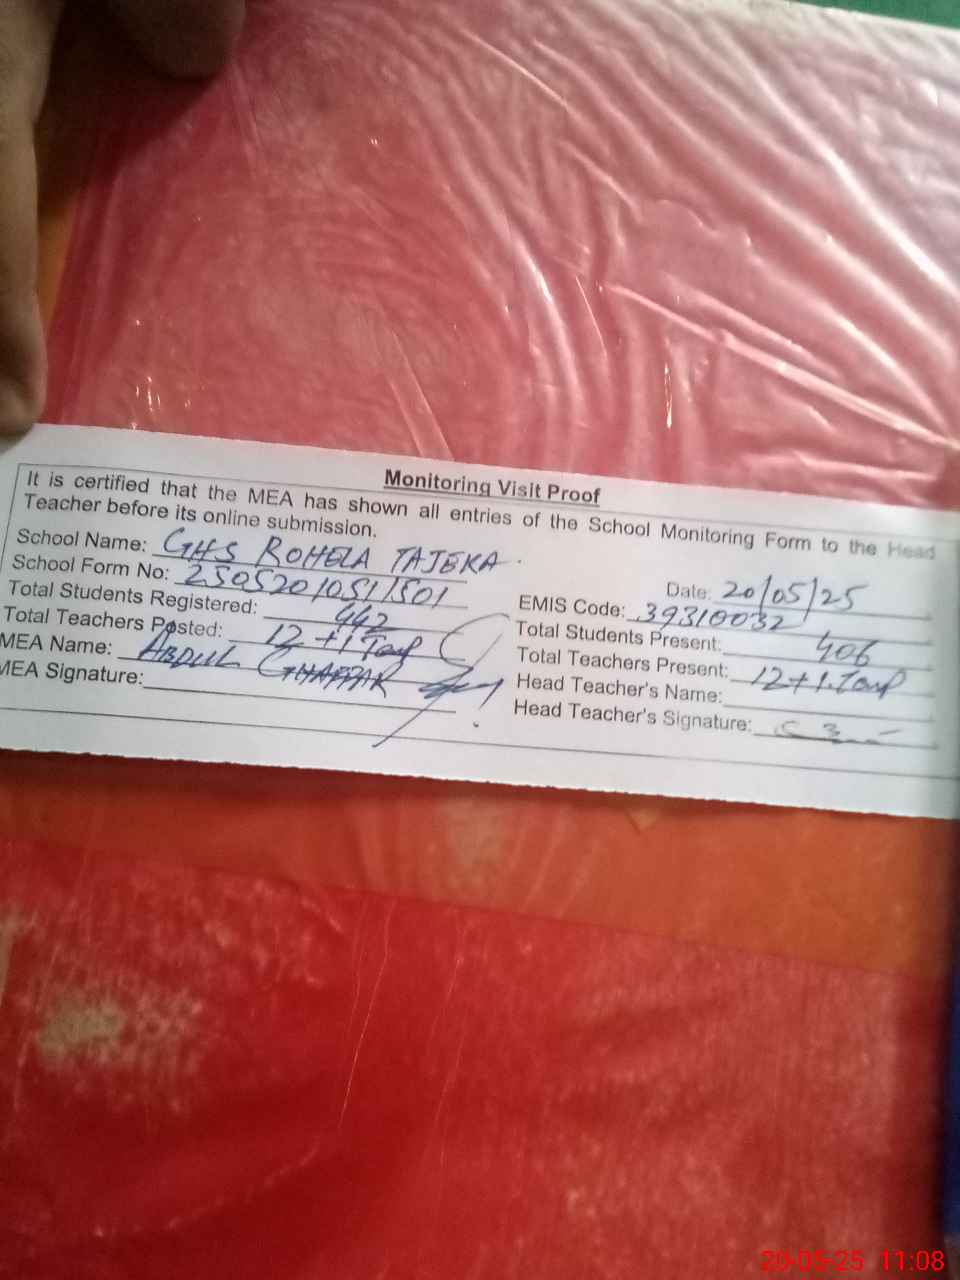 Monitoring Visit Proof
It is certified that the MEA has shown all entries of the School Monitoring Form to the Head
Teacher before its online submission.
School Name: GHS ROHELA TAJEKA.
Date: 20/05/25
School Form No: 25052010511501
EMIS Code: 39310032
Total Students Registered: 442
Total Students Present: 406
Total Teachers Posted: 12 +1 Temp
Total Teachers Present: 12+1.Temp
MEA Name: ABDUL GHAFFAR
Head Teacher's Name:
MEA Signature:
Head Teacher's Signature:
20-05-25 11:08